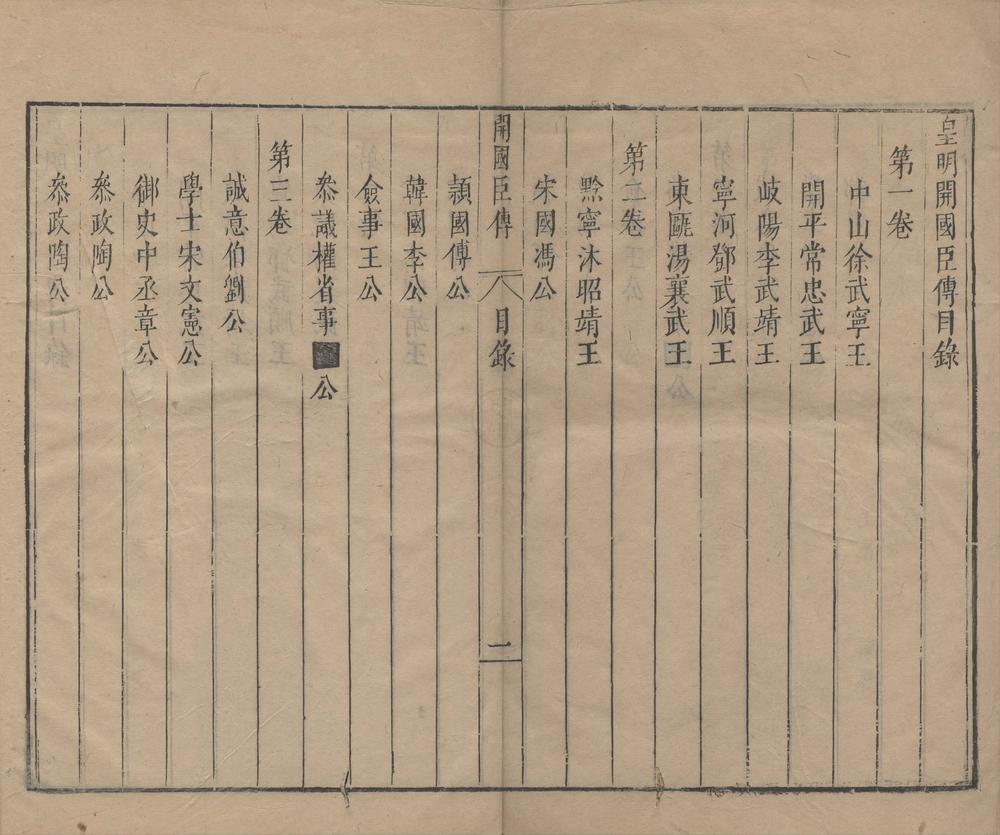 皇明開國臣傳目錄
第一卷
中山徐武寧王
開平常忠武王
岐陽李武靖王
寧河鄧武順王
東甌湯襄武王
第二卷
黔寧沐昭靖王
宋國馮公
開國臣傳 目錄 二
潁國傅公
韓國李公
僉事王公
叅議權省事公
第三卷
誠意伯劉公
學士宋文憲公
御史中丞章公
叅政陶公
叅政陶公